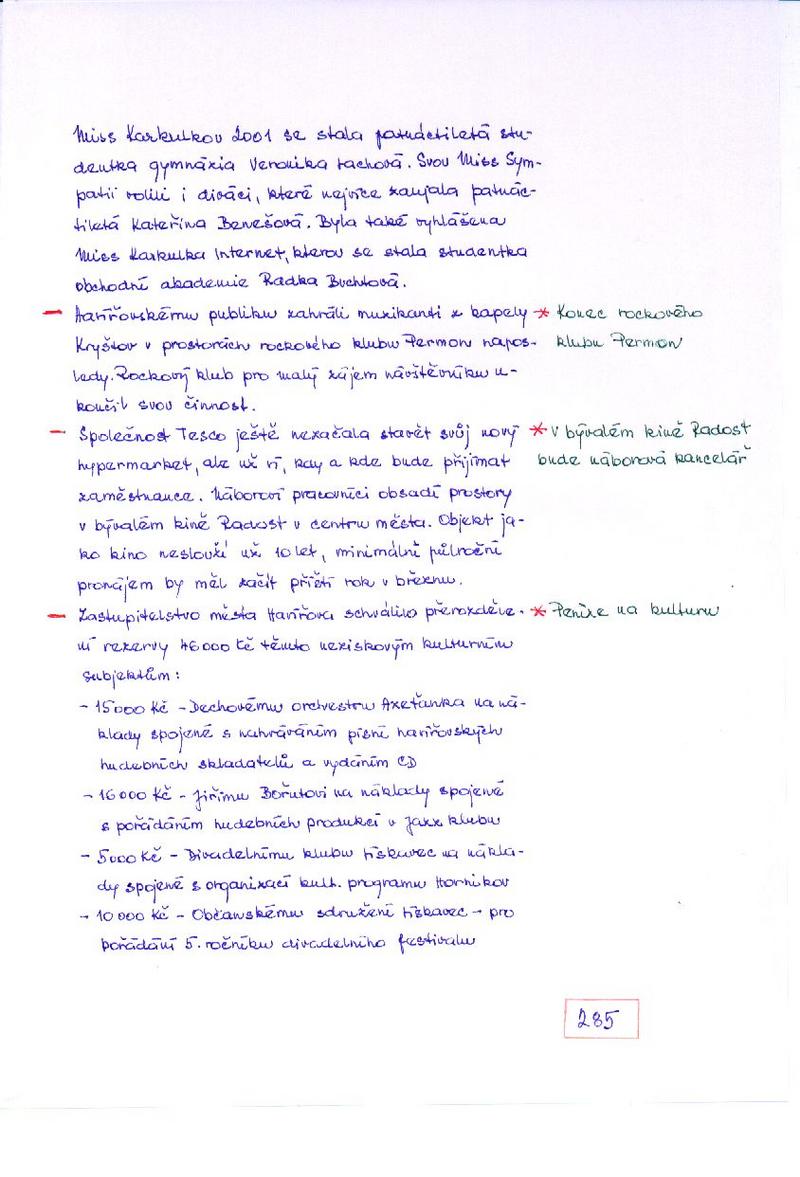 Miss Karkulkov 2001 se stala patnáctiletá stu-
dentka gymnázia Veronika Fachová. Svou Miss Sym-
patii volili i diváci, které nejvíce zaujala patnác-
tiletá Kateřina Benešová. Byla také vyhlášena
Miss Karkulka Internet, kterou se stala studentka
obchodní akademie Radka Buchtová.
- Havířovskému publiku zahráli muzikanti z kapely * Konec rockového
Kryštov v prostorách rockového klubu Permon napos- klubu Permon
ledy. Rockový klub pro malý zájem návštěvníku u-
končil svou činnost.
- Společnost Tesco ještě nezačala stavět svůj nový * V bývalém kině Radost
hypermarket, ale už ví, kdy a kde bude přijímat bude náborová kancelář
zaměstnance. Náboroví pracovníci obsadí prostory
v bývalém kině Radost v centru města. Objekt ja-
ko kino neslouží už 10 let, minimálně půlroční
pronájem by měl začít příští rok v březnu.
- Zastupitelstvo města Havířova schválilo přerozděle- * Peníze na kulturu
ní rezervy 46 000 Kč těmto neziskovým kulturním
subjektům:
- 15 000 Kč - Dechovému orchestru Axeťanka na ná-
klady spojené s nahráváním písní havířovských
hudebních skladatelů a vydáním CD
- 16 000 Kč - Jiřímu Bořutovi na náklady spojené
s pořádáním hudebních produkcí v Jazz klubu
- 5 000 Kč - Divadelnímu klubu Tískavec na nákla-
dy spojené s organizací kult. programu Horníkov
- 10 000 Kč - Občanskému sdružení Tískavec - pro
pořádání 5. ročníku divadelního festivalu
285